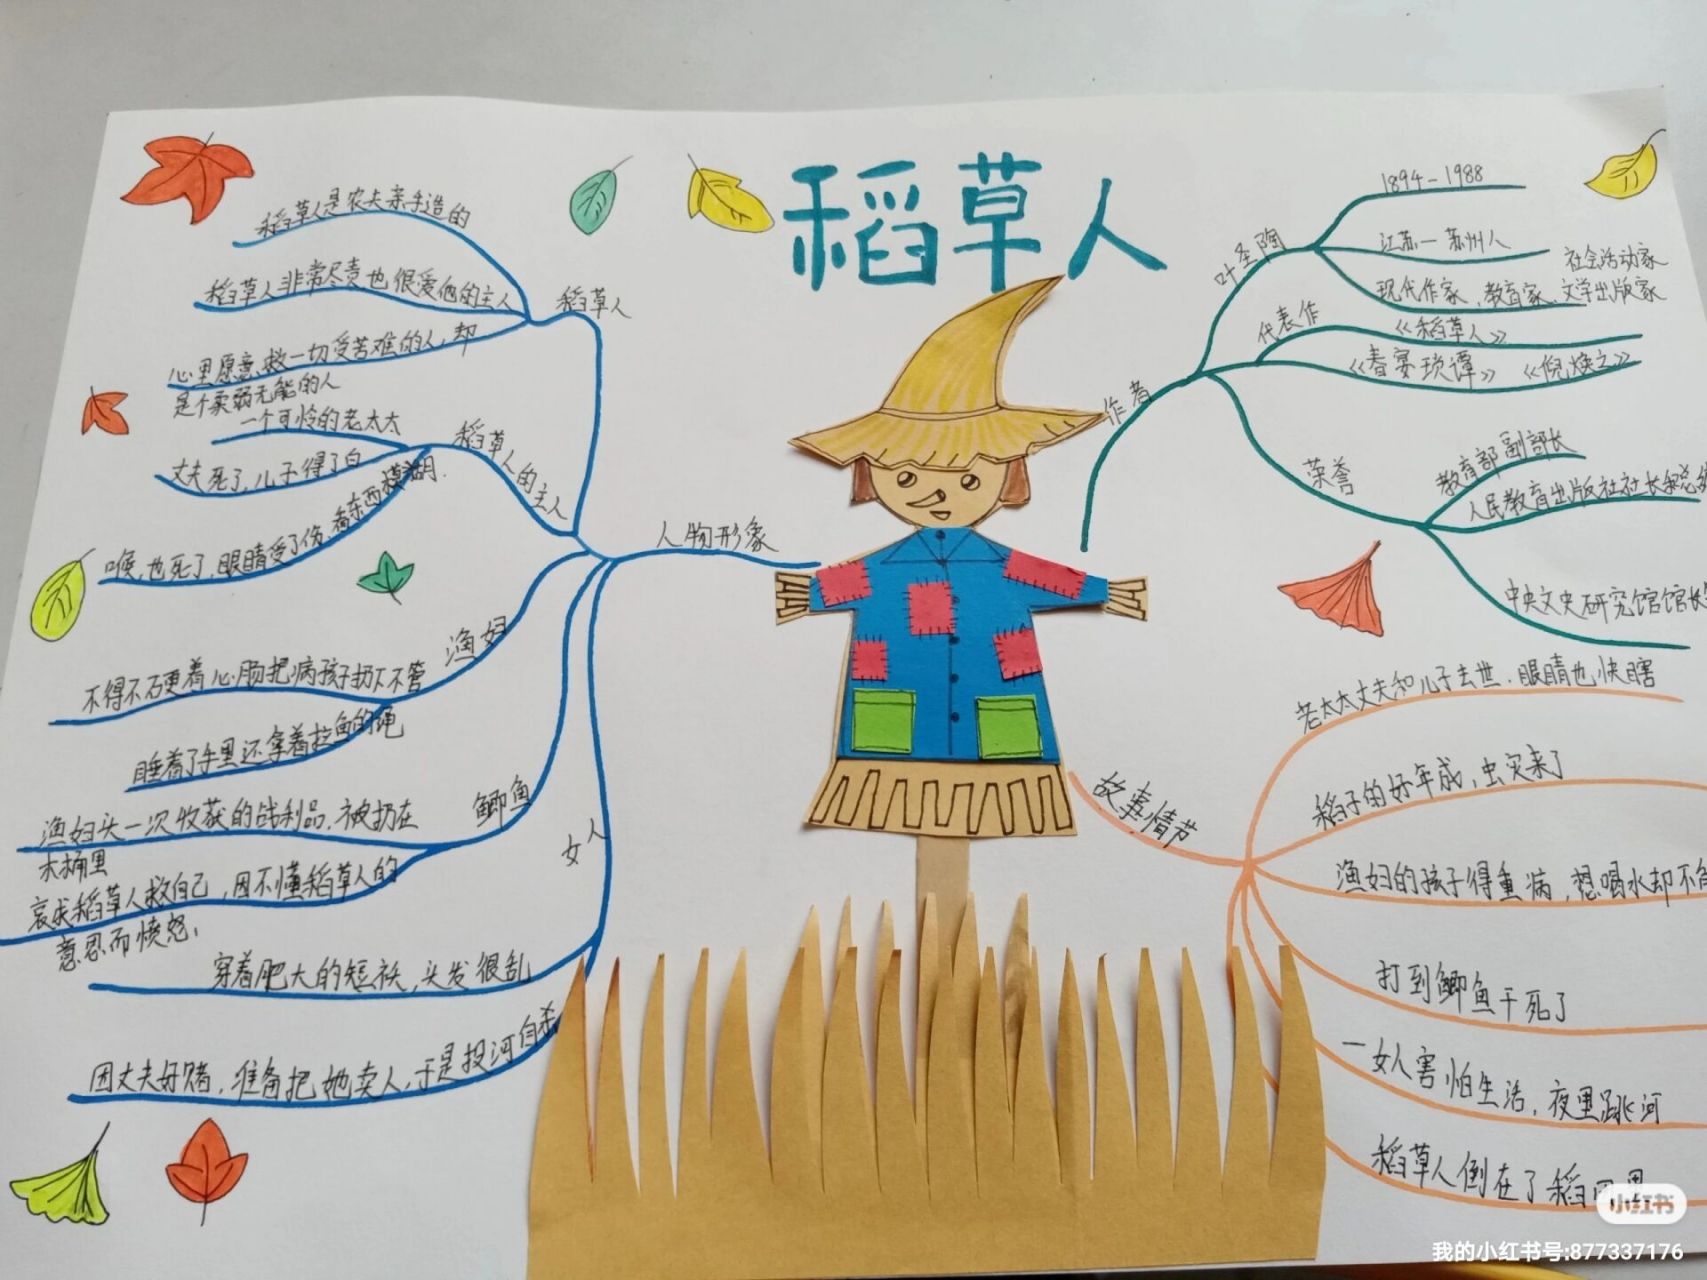 稻草人
稻草人是农夫亲手造的
稻草人非常尽责也很爱他的主人
稻草人
心里愿意救一切受苦难的人,却
是个柔弱无能的人
一个可怜的老太太
稻草人的主人
丈夫死了,儿子得了白
喉,也死了,眼睛受了伤,看东西模糊.
人物形象
渔妇
不得不硬着心肠把病孩子扔下不管
睡着了手里还拿着拉鱼的绳
鲫鱼
渔妇头一次收获的战利品,被扔在
木桶里
哀求稻草人救自己,因不懂稻草人的
意思而愤怒,
女人
穿着肥大的短袄,头发很乱
因丈夫好赌,准备把她卖人,于是投河自杀
作者
叶圣陶
1894-1988
江苏-苏州人
社会活动家
现代作家、教育家、文学出版家
代表作
《稻草人》
《春宴琐谭》 《倪焕之》
荣誉
教育部副部长
人民教育出版社社长和总
中央文史研究馆馆长
故事情节
老太太丈夫和儿子去世,眼睛也快瞎
稻子的好年成,虫灾来了
渔妇的孩子得重病,想喝水却不
打到鲫鱼干死了
一女人害怕生活,夜里跳河
稻草人倒在了稻田里
小红书
我的小红书号:877337176